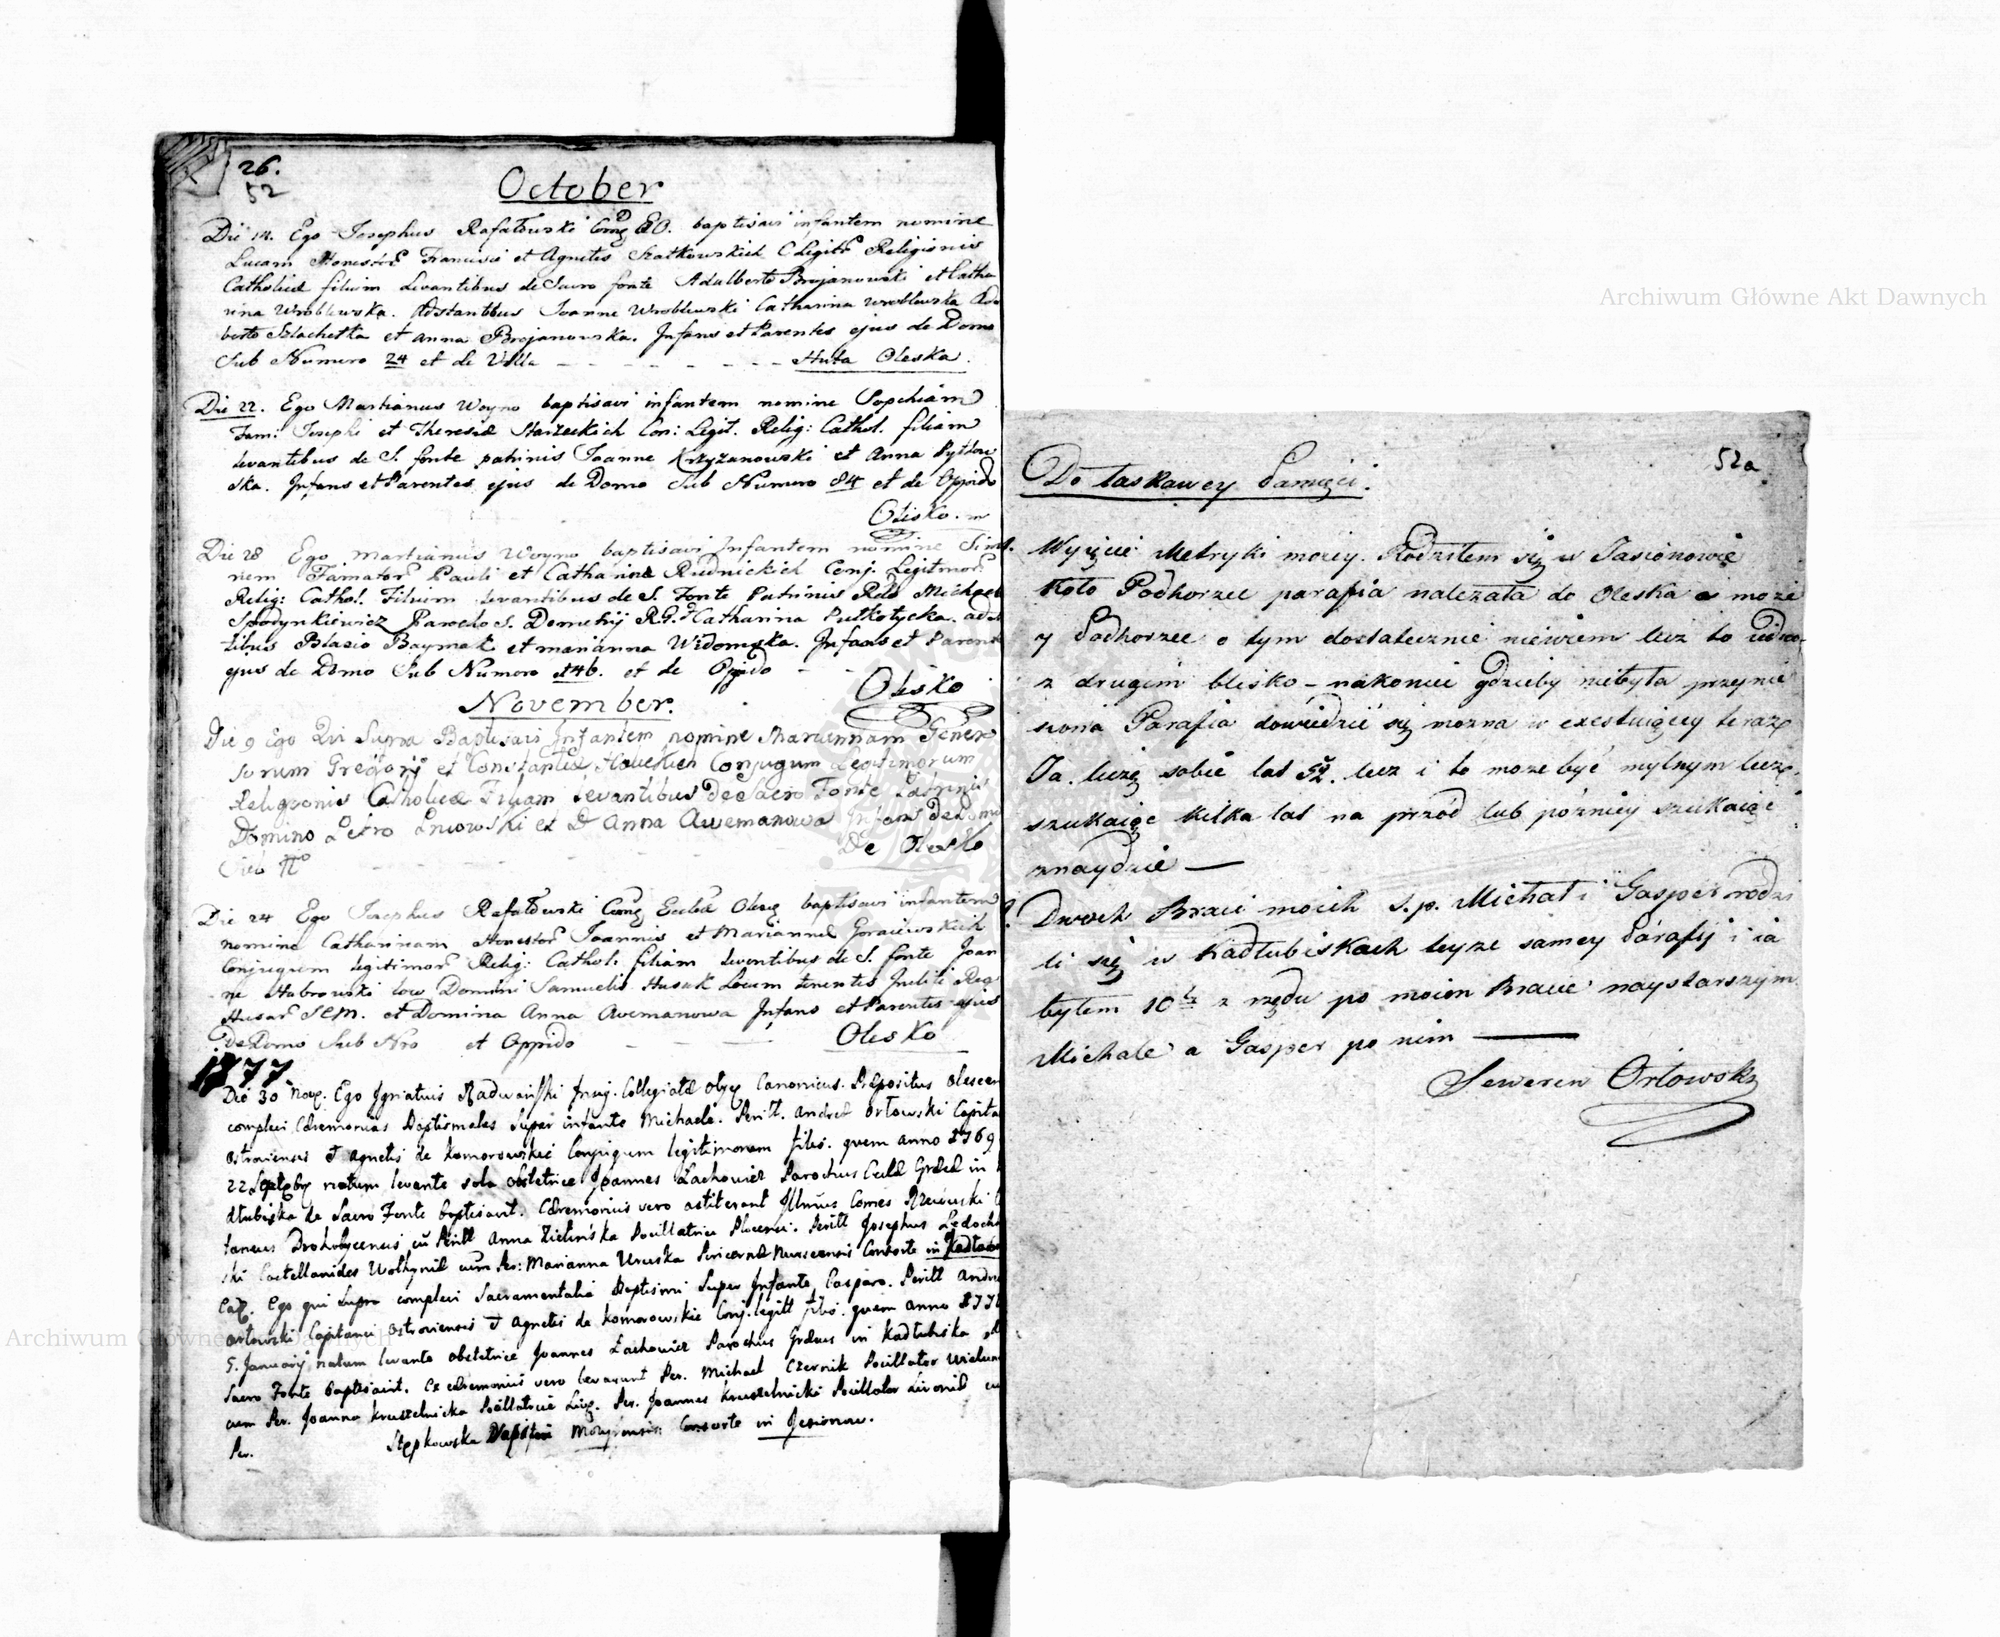 26.
52
October
Die 14. Ego Josephus Rafałowski baptisavi infantem nomine
Lucam Francisci et Agnetis Szatkowskich C Legitr Religionis
Catholicæ filium Levantibus de Sacro fonte Adalberto Brojanowski et Catha
rina Wroblewska. Adstantibus Joanne Wroblewski Catharina Wroblewska Ada
berto Blachetka et Anna Brojanowska. Infans et Parentes ejus de Domo
Sub Numero 24 et de Villa - - - - - - - Huta Oleska.
Die 22. Ego Martianus Woyno baptisavi infantem nomine Sophiam
Fam: Josephi et Theresiæ Starzeckich Con: Legit. Relig: Cathol. filiam
levantibus de S. fonte patrinis Joanne Krzyzanowski et Anna Pytlow
ska. Infans et Parentes ejus de Domo Sub Numero 84 et de Oppido
Olesko.
Die 28 Ego Martianus Woyno baptisavi Infantem nomine Simo
nem Famator Pauli et Catharinæ Rudnickich Conj. Legitmor
Relig: Cathol. Filium Levantibus de S. Fonte Patrinis Rdo Michael
Spodynkiewicz Parocho S. Demetrij R.G. Catharina Pulkotycka. adst
tibus Blasio Baymak et Marianna Widomska. Infans et Parent
ejus de Domo Sub Numero 146. et de Oppido - -
Olesko
November.
Die 9 Ego Qui Supra Baptisavi Infantem nomine Mariannam Genero
sorum Gregorij et Constantiæ Conjugum Legitimorum
Religionis Catholicæ Filiam Levantibus De Sacro Fonte Patrinis
Domino Petro et D Anna Awemanowa Infans De Domo
Sub No - - - De Olesko
Die 24 Ego Josephus Rafałowski baptisavi infantem
nomine Catharinam Honestor Joannis et Mariannæ Goraiewskich
Conjugum legitimor Relig: Cathol: filiam levantibus de S. fonte Joan
ne Habrowski loco Domini Samuelis Husak Locum tenentis Militi Reg
Husar et Domina Anna Avemanowa Infans et Parentes ejus
De Domo Sub Nro et Oppido - - - Olesko
1777
Die 30 Nov. Ego Ignatius Radwański Insig. Collegiatæ Canonicus. Præpositus Olescen
complevi Cæremonias Baptismales Super infante Michaele. Perill. Andreæ Orłowski Capita
Ostroviensis et Agnetis de Komorowskie Conjugum legitimorum filio. quem anno 1769
22 natum levante sola obstetrice Joannes Lachowicz Parochus in
dłubiska de Sacro Fonte baptisavit. Cæremoniis vero astiterant Illmus Comes Rzewuski
taneus Drohobycensis cum Perill Anna Zielińska Pocillatrice Plocensi. Perill Josephus Ledocho
ski Castellanides Wolhyniæ cum Per: Marianna Uruska Consorte in Kadłub
Ego qui supra complevi Sacramentalia Baptismi Super Infante Casparo. Perill Andre
Orłowski Capitanei Ostroviensis et Agnetis de Komorowskie Conj. legitt filio. quem anno 177
5. Januarij natum levante obstetrice Joannes Lachowicz Parochus Græcus in Kadłubiska
Sacro Fonte baptisavit. Ex cæremoniis vero levarunt Per. Michael Czernik Pocillator
cum Per. Joanna Kruszelnicka Pocillatrice Liv. Per. Joannes Kruszelnicki Pocillator Livoniæ
Per. Stępkowska Consorte in Jesionow.
52a
Do łaskawey Pamięci.
Wyięcie Metryki moiey. Rodziłem się w Jasionowie
koło Podhorzec parafia należała do Oleska a może
y Podhorzec o tym dostatecznie niewiem lecz to iedno
z drugim blisko – nakoniec gdzieby niebyła przenie
siona Parafia dowiedzieć się można w exestuiącey teraz
Ja liczę sobie lat 52. lecz i to może być mylnym lecz
szukaiąc kilka lat na przód lub pózniey szukaiąc
znaydzie —
Dwoch Braci moich s.p. Michał i Gasper rodzi
li się w Kadłubiskach teyże samey Parafij i ia
byłem 10ty z rzędu po moim Bracie naystarszym
Michale a Gasper po nim ———
Seweren Orłowski
Archiwum Główne Akt Dawnych
Archiwum Główne Akt Dawnych